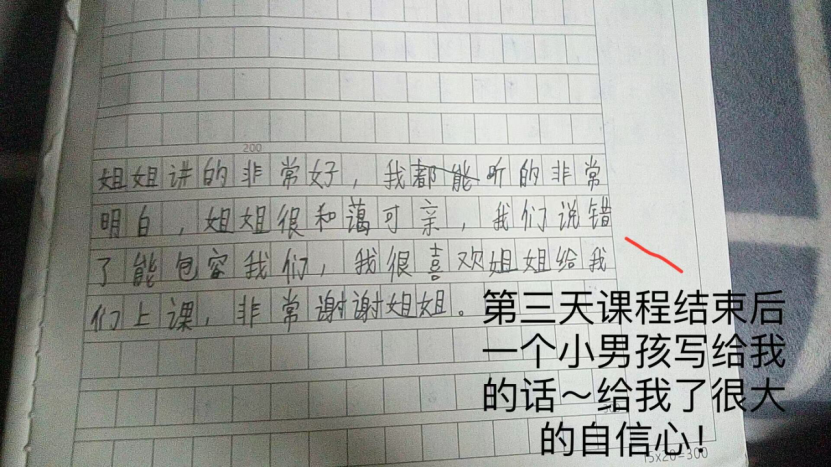 200
姐姐讲的非常好，我都能听的非常
明白，姐姐很和蔼可亲，我们说错
了能包容我们，我很喜欢姐姐给我
们上课，非常谢谢姐姐。
第三天课程结束后
一个小男孩写给我
的话～给我了很大
的自信心！
15×20=300